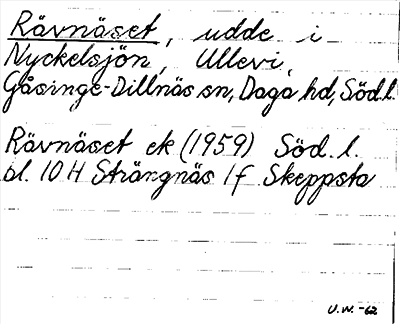 Rävnäset, udde i
Nyckelsjön, Ullevi,
Gåsinge-Dillnäs sn, Daga hd, Södl.
Rävnäset ek (1959) Söd. l.
bl. 10 H Strängnäs 1f Skeppsta
U.W. -62